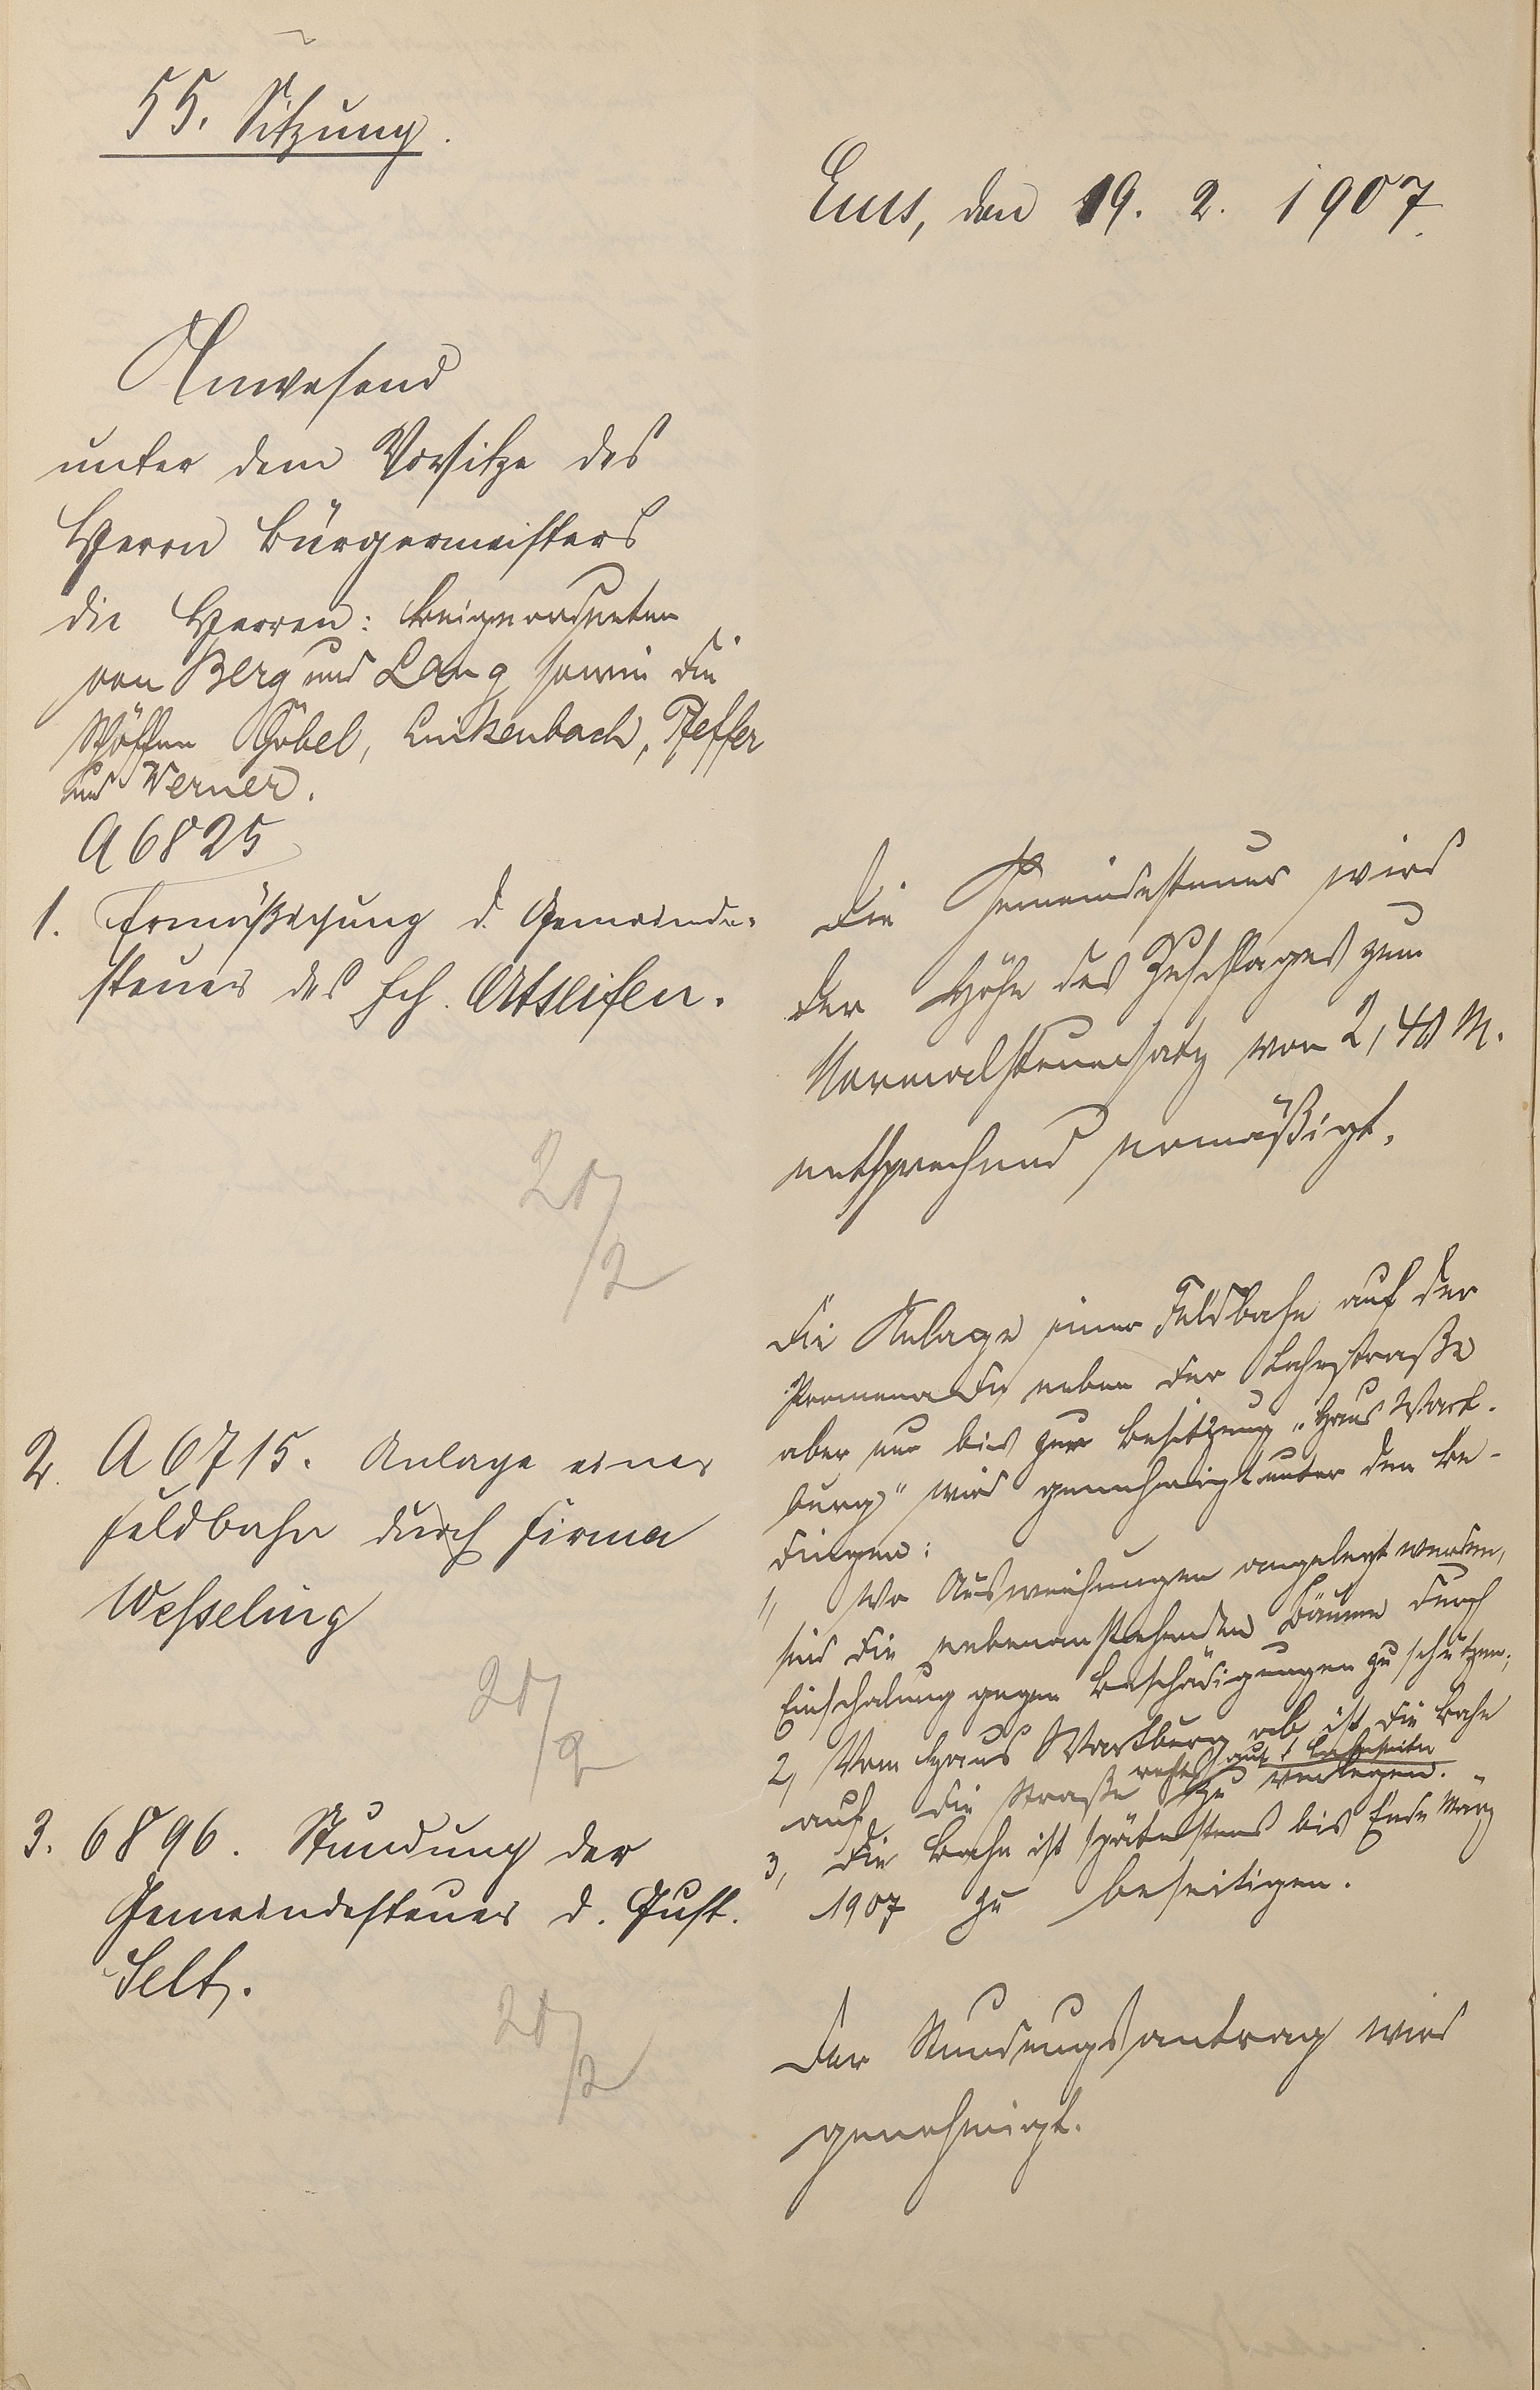 55. Sitzung.
Ems, den 19. 2. 1907.
Anwesend
unter dem Vorsitze des
Herrn Bürgermeisters
die Herren: Beigeordneten
von Berg und Lang sowie die
Schöffen Göbel, Linkenbach, Pfeffer
und Werner.
A 6825
1. Ermäßigung d. Gemeinde-
steuer des Hch. Ortseifen.
Die Gemeindesteuer wird
der Höhe des Zuschlages zum
Normalsteuersatz von 2,40 M.
entsprechend ermäßigt.
20/2
2. A 6715. Anlage einer
Feldbahn durch Firma
Wesseling
Die Anlage einer Feldbahn auf der
Promenade neben der Lahnstraße
aber nur bis zur Besitzung "Haus Wart-
burg" wird genehmigt unter den Be-
dingen:
1, Wo Ausweichungen angelegt werden,
sind die nebenanstehenden Bäume durch
Einschalung gegen Beschädigungen zu schützen;
2, Vom Haus Wartburg ab ist die Bahn
auf die Straße rechts auf d. Lahnseite zu verlegen.
3, Die Bahn ist spätestens bis Ende März
1907 zu beseitigen.
20/2
3. 6896. Stundung der
Gemeindesteuer d. Gust.
Selt.
Der Stundungsantrag wird
genehmigt.
20/2